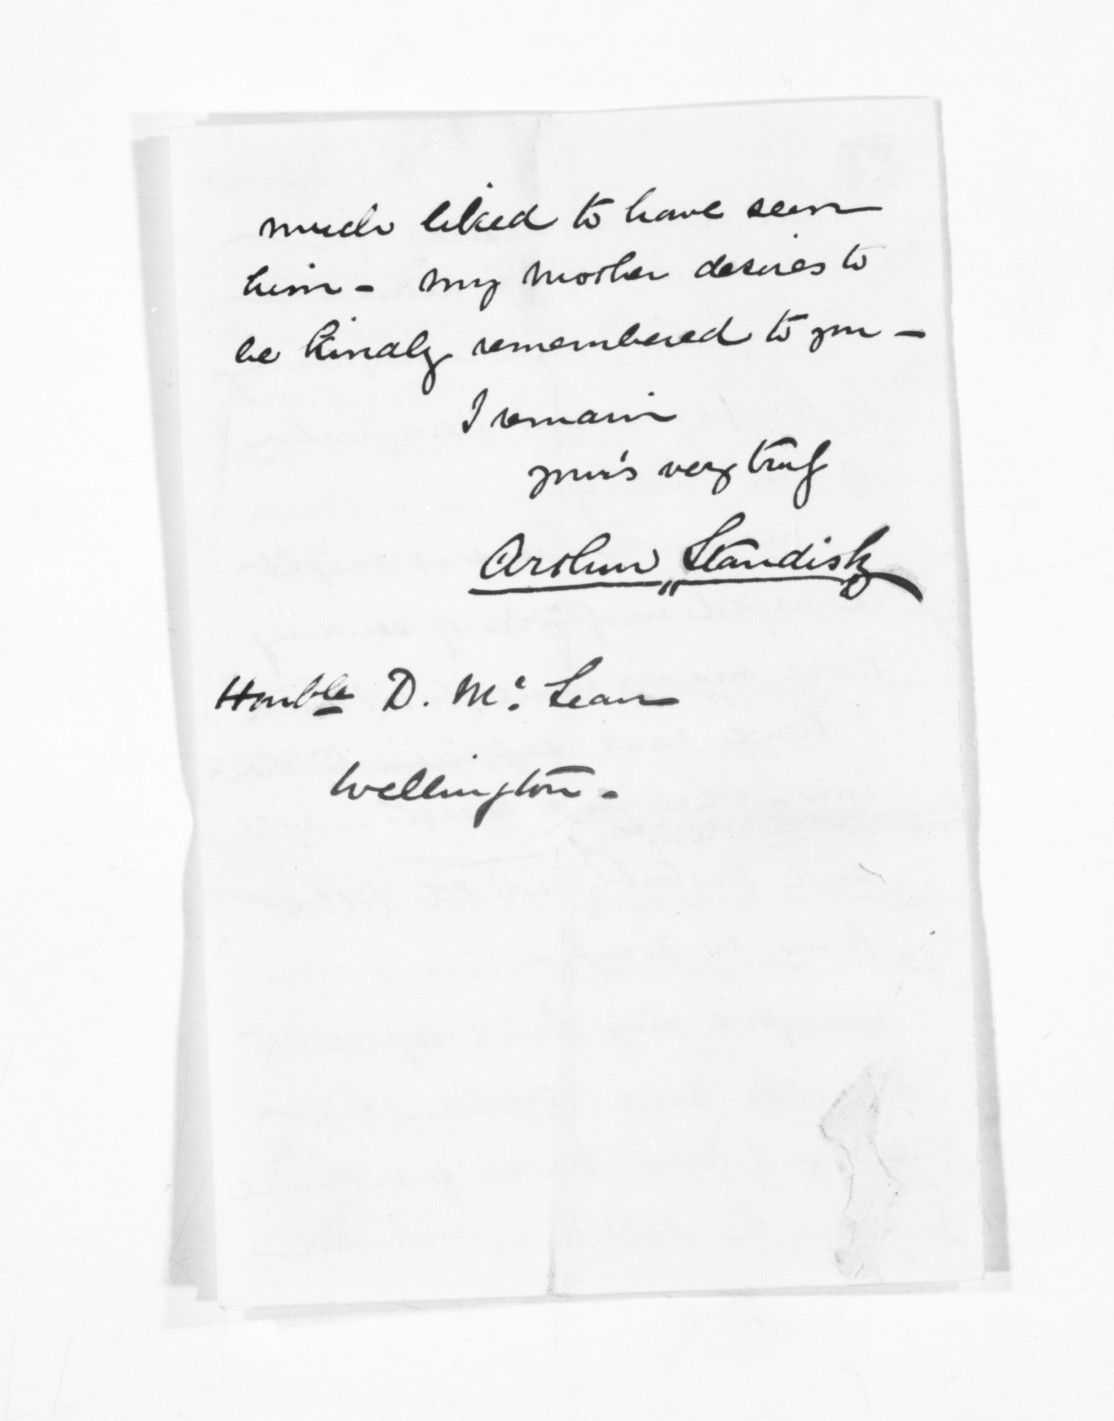 much liked to have seen
him - my mother desires to
be kindly remembered to you -
I remain
your's very truly
Arthur Standish
Honble D. Mc. Lean
Wellington -